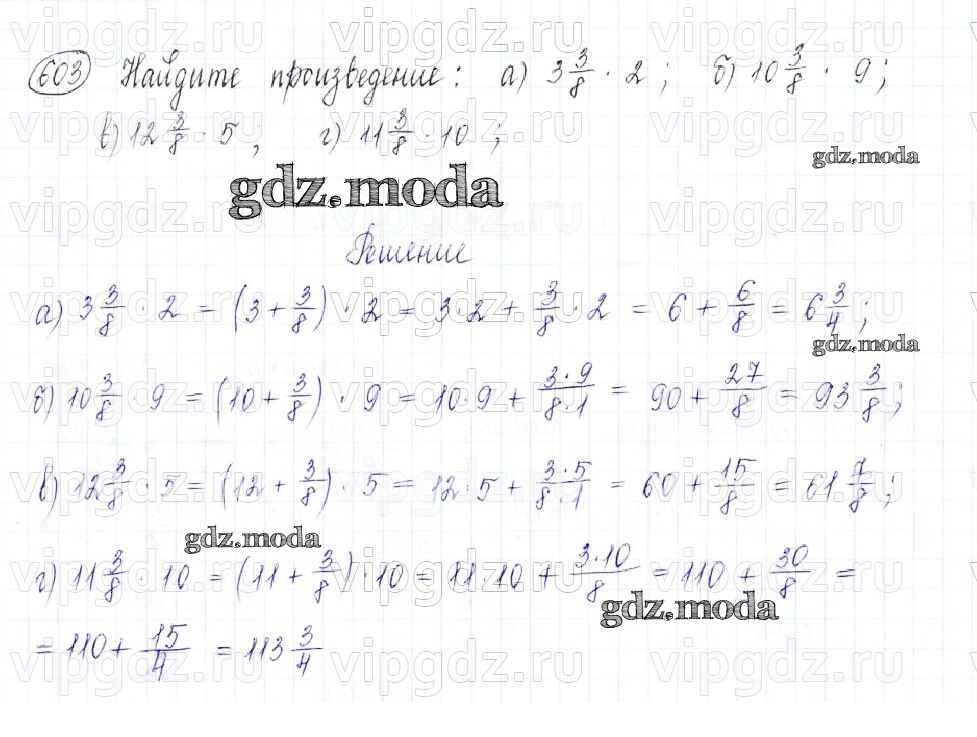 603 Найдите произведение: а) 3 3/8 · 2; б) 10 3/8 · 9;
в) 12 3/8 · 5; г) 11 3/8 · 10;
gdz.moda
gdz.moda
Решение
а) 3 3/8 · 2 = (3 + 3/8) · 2 = 3·2 + 3/8 · 2 = 6 + 6/8 = 6 3/4;
gdz.moda
б) 10 3/8 · 9 = (10 + 3/8) · 9 = 10·9 + 3·9/8·1 = 90 + 27/8 = 93 3/8;
в) 12 3/8 · 5 = (12 + 3/8) · 5 = 12·5 + 3·5/8·1 = 60 + 15/8 = 61 7/8;
gdz.moda
г) 11 3/8 · 10 = (11 + 3/8) · 10 = 11·10 + 3·10/8 = 110 + 30/8 =
gdz.moda
= 110 + 15/4 = 113 3/4
vipgdz.ru